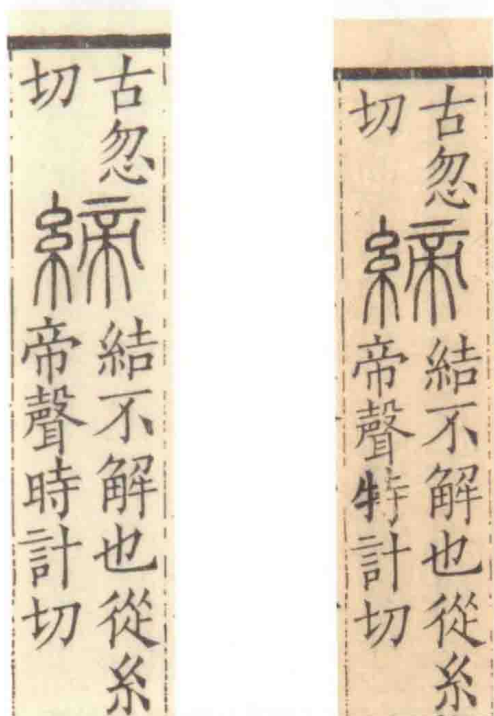 古忽
切
締
結不解也從糸
帝聲時計切
古忽
切
締
結不解也從糸
帝聲特計切